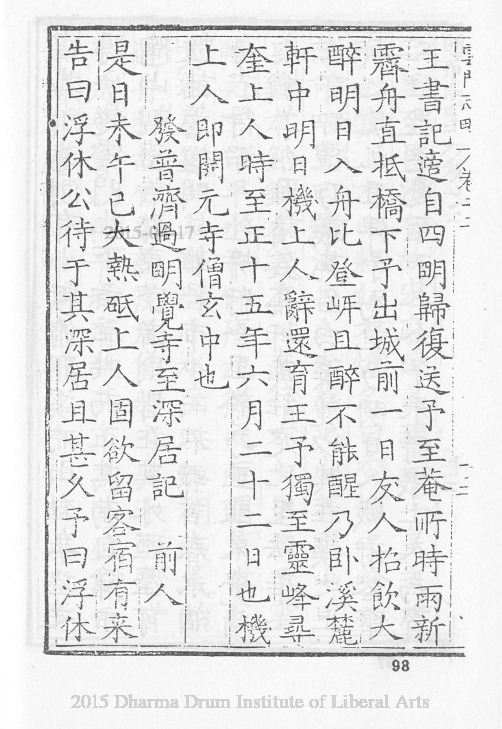 雲門志略 卷之二
王書記䕫自四明歸復送予至菴所時雨新
霽舟直抵橋下予出城前一日友人招飲大
醉明日入舟比登岸且醉不能醒乃卧溪麓
軒中明日機上人辭還育王予獨至靈峰尋
奎上人時至正十五年六月二十二日也機
上人即開元寺僧玄中也
發普濟過明覺寺至深居記 前人
是日未午已大熱砥上人固欲留客宿有来
告曰浮休公待于其深居且甚久予曰浮休
98
2015 Dharma Drum Institute of Liberal Arts